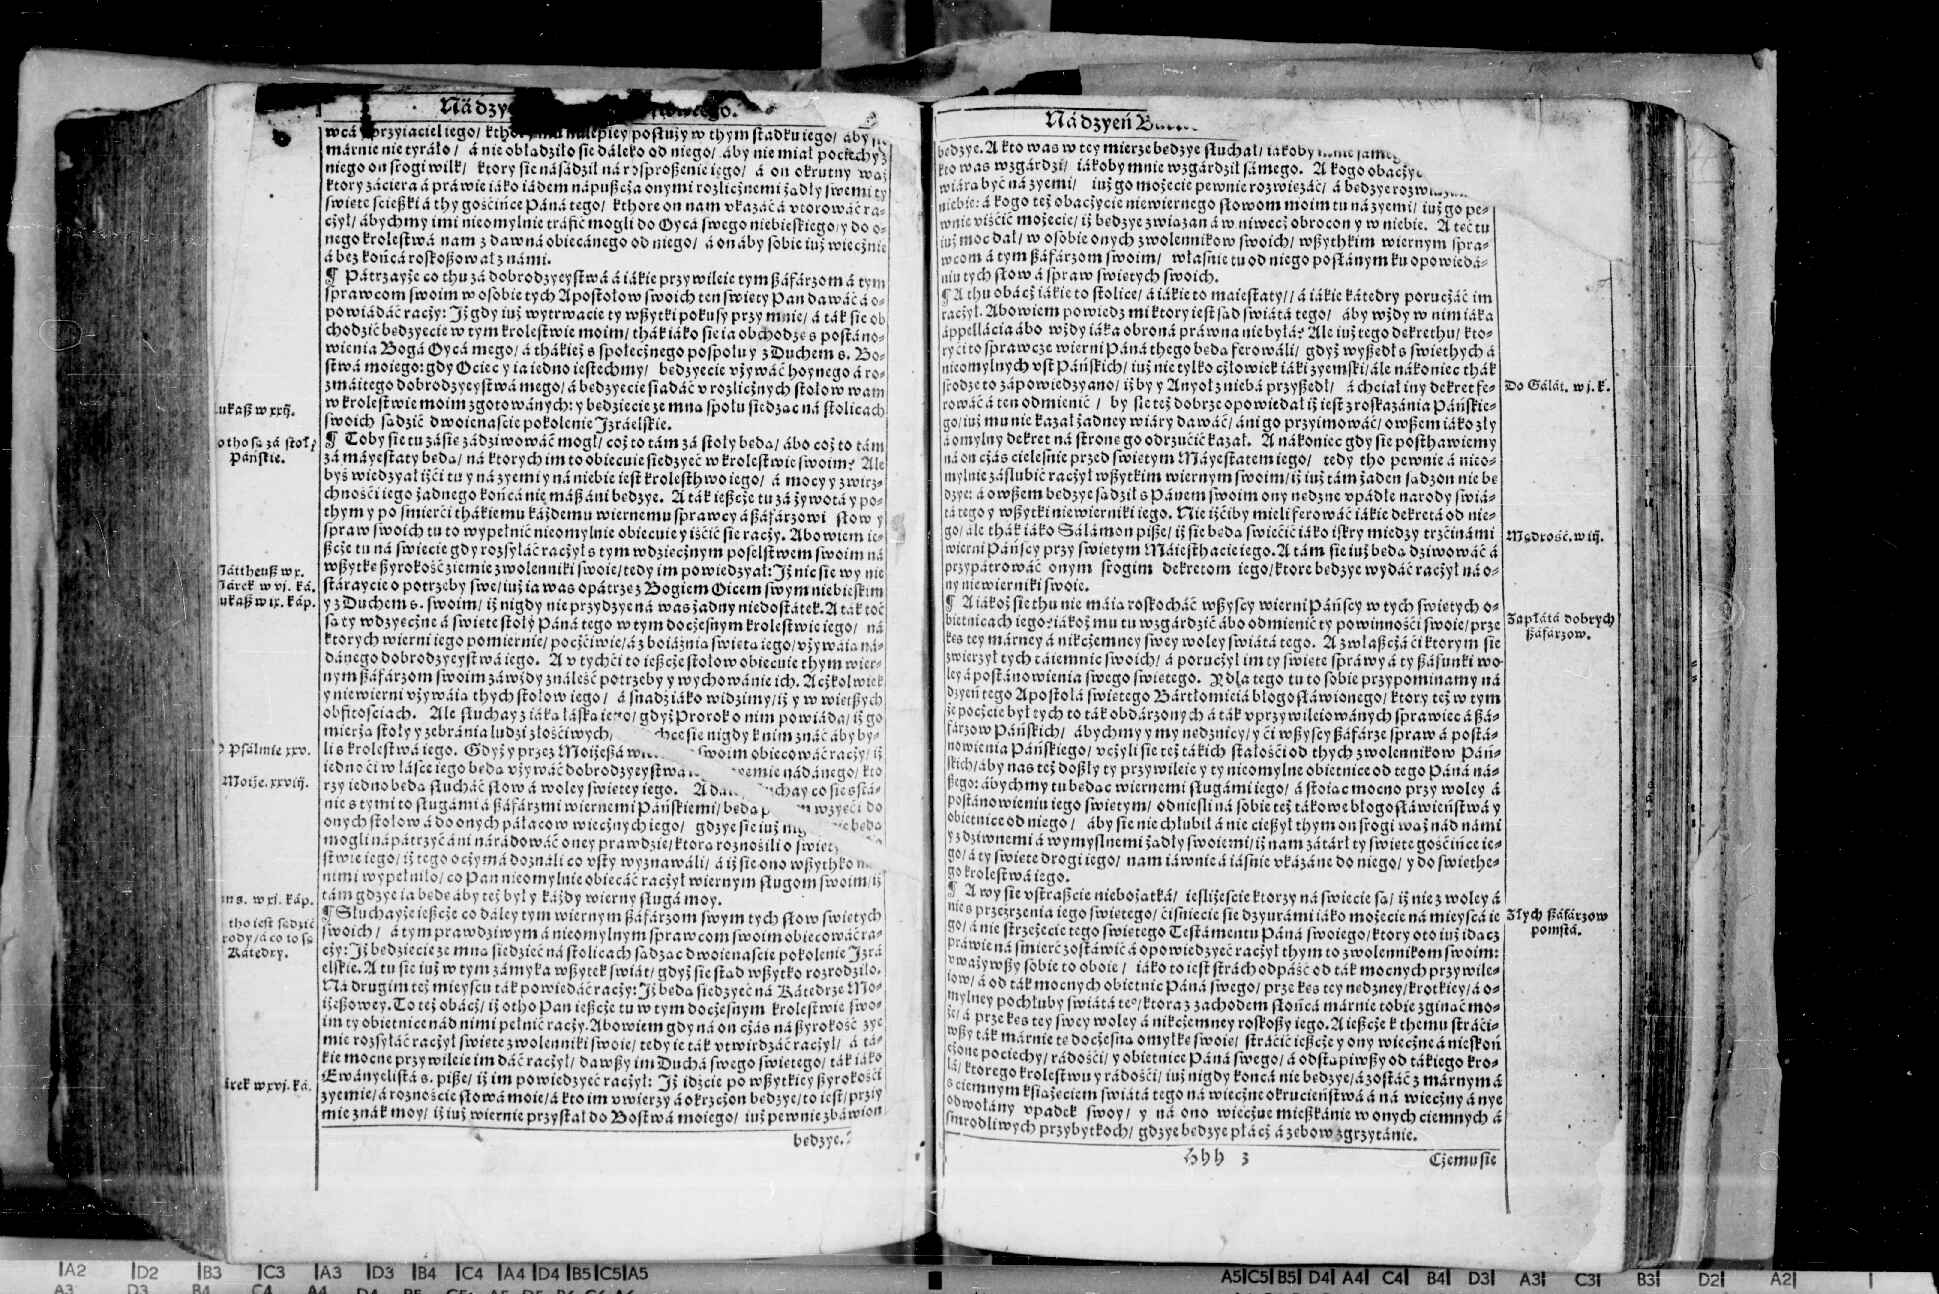 Ná dzy
wcá y przyiaciel iego/ kthory mu nalepiey posłuży w thym stadku iego/ aby
márnie nie tyráło/ á nie obłądziło sie dáleko od niego/ áby nie miał pociechy z
niego on srogi wilk/ ktory sie násádził ná rosproßenie iego/ á on okrutny wąż
ktory záciera á práwie iáko iádem nápußcża onymi rozlicżnemi żądły swemi ty
święte ścießki á thy gościńce Páná tego/ kthore on nam vkázáć á vtorowáć ra-
cżył/ ábychmy imi nieomylnie tráfić mogli do Oycá swego niebieskiego/ y do o-
nego krolestwá nam z dawná obiecánego od niego/ á on áby sobie iuż wiecżnie
á bez końcá roskoßował z námi.
¶ Pátrzayże co thu zá dobrodzyeystwá á iákie przywileie tym ßáfárzom á tym
spráwcom swoim w osobie tych Apostołow swoich ten święty Pan dáwáć á o-
powiádáć racży: Iż gdy iuż wytrwacie ty wßytki pokusy przy mnie/ á ták sie ob
chodzić będzyecie w tym krolestwie moim/ thák iáko sie ia obchodzę s postáno-
wienia Bogá Oycá mego/ á thákież s społecżnego pospołu y z Duchem s. Bo-
stwá moiego: gdy Ociec y ia iedno iestechmy/ będzyecie vżywáć hoynego á ro-
zmáitego dobrodzyeystwá mego/ á będzyecie siádáć v rozlicżnych stołow wam
w krolestwie moim zgotowánych: y będziecie ze mną społu siedząc ná stolicach
swoich sądzić dwoienaście pokolenie Izráelskie.
¶ Toby sie tu zásię zádziwowáć mogł/ coż to tám zá stoły będą/ ábo coż to tám
zá máyestaty będą/ ná ktorych im to obiecuie siedzyeć w krolestwie swoim? Ale
byś wiedzyał iżći tu y ná zyemi y ná niebie iest krolesthwo iego/ á mocy y zwirz-
chności iego żadnego końcá nie máß áni będzye. A ták ießcże tu zá żywotá y po-
thym y po śmierći thákiemu káżdemu wiernemu spráwcy á ßáfárzowi słow y
spraw swoich tu to wypełnić nieomylnie obiecuie y iśćić sie racży. Abowiem ie-
ßcże tu ná świecie gdy rozsyłáć racżył s tym wdziecżnym poselstwem swoim ná
wßytkę ßyrokość ziemie zwolenniki swoie/ tedy im powiedzyał: Iż nic sie wy nie
stáraycie o potrzeby swe/ iuż ia was opátrzę z Bogiem Oicem swym niebieskim
y z Duchem s. swoim/ iż nigdy nie przydzye ná was żadny niedostátek. A ták toć
są ty wdzyecżne á święte stoły Páná tego w tym docżesnym krolestwie iego/ ná
ktorych wierni iego pomiernie/ pocżćiwie/ á z boiáźnią świętą iego/ vżywáią ná-
dánego dobrodzyeystwá iego. A v tychći to ießcże stołow obiecuie thym wier-
nym ßáfárzom swoim záwżdy ználeść potrzeby y wychowánie ich. Acżkolwiek
y niewierni vżywáią thych stołow iego/ á snadź iáko widzimy/ iż y w więtßych
obfitościach. Ale słuchay z iáką łáską iego/ gdyż Prorok o nim powiáda/ iż go
mierżą stoły y zebránia ludzi złościwych/ chce sie nigdy k nim znáć áby by-
li s krolestwá iego. Gdyż y przez Moiżeßá swoim obiecowáć racży/ iż
iednoći w łásce iego będą vżywáć dobrodzyeystwá nádánego/ kto
rzy iedno będą słucháć słow á woley świętey iego. A słuchay co sie sstá-
nie s tymi to sługámi á ßáfárzmi wiernemi Páńskiemi/ będą wzyęći do
onych stołow á do onych páłacow wiecżnych iego/ gdzye sie iuż będą
mogli nápátrzyć áni nárádowáć oney prawdzie/ ktorą roznośili o
stwie iego/ iż tego ocżymá doználi co vsty wyznawáli/ á iż sie ono wßythko
nimi wypełniło/ co Pan nieomylnie obiecáć racżył wiernym sługom swoim/ iż
tám gdzye ia będę áby też był y káżdy wierny sługá moy.
¶ Słuchayże ießcże co dáley tym wiernym ßáfárzom swym tych słow świętych
swoich/ á tym prawdziwym á nieomylnym spráwcom swoim obiecowáć ra-
cży: Iż będziecie ze mną siedzieć ná stolicach sądząc dwoienaście pokolenie Izrá
elskie. A tu sie iuż w tym zámyka wßytek świát/ gdyż sie stąd wßytko rozrodziło.
Ná drugim też mieyscu ták powiedáć racży: Iż będą siedzyeć ná Kátedrze Mo-
iżeßowey. To też obacż/ iż otho Pan ießcże tu w tym docżesnym krolestwie swo-
im ty obietnice nád nimi pełnić racży. Abowiem gdy ná on cżás ná ßyrokość zye
mie rozsyłáć racżył święte zwolenniki swoie/ tedy ie ták vtwirdzáć racżył/ á tá-
kie mocne przywileie im dáć racżył/ dawßy im Duchá swego świętego/ ták iáko
Ewányelistá s. piße/ iż im powiedzyeć racżył: Iż idźcie po wßytkiey ßyrokości
zyemie/ á roznoście słowá moie/ á kto im vwierzy á okrzcżon będzye/ to iest/ przy
mie znák moy/ iż iuż wiernie przystał do Bostwá moiego/ iuż pewnie zbáwion
będzye.
ukaß w xxij.
o tho są zá stoły
Páńskie.
Mátthеuß w x.
Márek w vj. ká.
ukaß w ix. káp.
Psálmie xxv.
Moiże. xxviij.
w xij. káp.
tho iest sądzić
rody/ á co to są
Kátedry.
árek w xvj. ká.
Ná dzyeń
będzye. A kto was w tey mierze będzye słuchał/ iákoby mnie
kto was wzgárdzi/ iákoby mnie wzgárdził sámego. A kogo
wiárá być ná zyemi/ iuż go możecie pewnie rozwięzáć/ á będzye
niebie: á kogo też obacżycie niewiernego słowom moim tu ná zyemi/ iuż go pe-
wnie viśćić możecie/ iż będzye związan á w niwecż obrocon y w niebie. A teć tu
iuż moc dał/ w osobie onych zwolennikow swoich/ wßythkim wiernym spra-
wcom á tym ßáfárzom swoim/ własnie tu od niego posłánym ku opowiedá-
niu tych słow á spraw świętych swoich.
¶ A thu obacż iákie to stolice/ á iákie to máiestaty/ / á iákie kátedry porucżáć im
racżył. Abowiem powiedz mi ktory iest sąd świátá tego/ áby wżdy w nim iáka
áppellácia ábo wżdy iáka obroná práwna nie była? Ale iuż tego dekrethu/ kto-
ryći to spráwcze wierni Páná thego będą ferowáli/ gdyż wyßedł s świethych á
nieomylnych vst Páńskich/ iuż nie tylko cżłowiek iáki zyemski/ ále nákoniec thák
srodze to zápowiedzyano/ iżby y Anyoł z niebá przyßedł/ á chciał iny dekret fe-
rowáć á ten odmienić/ by sie też dobrze opowiedał iż iest z roskazánia Páńskie-
go/ iuż mu nie kazał żadney wiáry dáwáć/ áni go przyimowáć/ owßem iáko zły
á omylny dekret ná stronę go odrzućić kazał. A nákoniec gdy sie posthawiemy
ná on cżás cieleśnie przed świętym Máyestatem iego/ tedy tho pewnie á nieo-
mylnie záślubić racżył wßytkim wiernym swoim/ iż iuż tám żaden sądzon nie bę
dzye: á owßem będzye sądził s Pánem swoim ony nędzne vpádłe narody świá-
tá tego y wßytki niewierniki iego. Nie iżćiby mieli ferowáć iákie dekretá od nie-
go/ ale thák iáko Sálámon piße/ iż sie będą świećić iáko iskry miedzy trzćinámi
wierni Páńscy przy świętym Máiesthacie iego. A tám sie iuż będą dziwowáć á
przypátrowáć onym srogim dekretom iego/ ktore będzye wydáć racżył ná o-
ny niewierniki swoie.
¶ A iákoż sie thu nie máią roskocháć wßyscy wierni Páńscy w tych świętych o-
bietnicach iego? iákoż mu tu wzgárdzić ábo odmienić ty powinności swoie/ prze
kęs tey márney á nikcżemney swey woley świátá tego. A zwłaßcżá ći ktorym sie
zwierzył tych táiemnic swoich/ á porucżył im ty święte spráwy á ty ßáfunki wo-
ley á postánowienia swego świętego. Y dla tego tu to sobie przypominamy ná
dzyeń tego Apostołá świętego Bártłomieiá błogosłáwionego/ ktory też w tym
że pocżcie był tych to ták obdárzonych á ták vprzywileiowánych spráwiec á ßá-
fárzow Páńskich/ ábychmy y my nędznicy/ y ći wßyscy ßáfárze spraw á postá-
nowienia Páńskiego/ vcżyli sie też tákich stałości od thych zwolennikow Páń-
skich/ áby nas też doßły ty przywileie y ty nieomylne obietnice od tego Páná ná-
ßego: ábychmy tu będąc wiernemi sługámi iego/ á stoiąc mocno przy woley á
postánowieniu iego świętym/ odnieśli ná sobie też tákowe błogosłáwieństwá y
obietnice od niego/ áby sie nie chlubił á nie cießył thym on srogi wąż nád námi
y z dziwnemi á wymyslnemi żądły swoiemi/ iż nam zátárł ty święte gośćińce ie-
go/ á ty święte drogi iego/ nam iáwnie á iáśnie vkázáne do niego/ y do świethe-
go krolestwá iego.
¶ A wy sie vstraßcie niebożątká/ iesliżeście ktorzy ná świecie są/ iż nie z woley á
nie s przeźrzenia iego świętego/ ćiśniecie sie dzyurámi iáko możecie ná mieyscá ie
go/ á nie strzeżecie tego świętego Testámentu Páná swoiego/ ktory oto iuż idącz
práwie ná śmierć zostáwić á opowiedzyeć racżył thym to zwolennikom swoim:
vważywßy sobie to oboie/ iáko to iest strách odpáść od ták mocnych przywile-
iow/ á od ták mocnych obietnic Páná swego/ prze kęs tey nędzney/ krotkiey/ á o-
mylney pochłuby świátá tego/ ktora z zachodem słońcá márnie tobie zginąć mo-
że/ á prze kęs tey swey woley á nikcżemney roskoßy iego. A ießcże k themu stráći-
wßy ták márnie tę docżesną omyłkę swoię/ stráćić ießcże y ony wiecżne á nieskoń
cżone pociechy/ rádości/ y obietnice Páná swego/ á odstąpiwßy od tákiego kro-
lá/ ktorego krolestwu y rádości/ iuż nigdy końcá nie będzye/ á zostáć z márnym á
s ciemnym książęciem świátá tego ná wiecżne okrucieństwá á ná wiecżny á nye
odwołány vpadek swoy/ y ná ono wiecżne mießkánie w onych ciemnych á
smrodliwych przybytkoch/ gdzye będzye płácż á zębow zgrzytánie.
Hhh 3
Cżemu sie
Do Gálát. w j. k.
Mądrość. w iij.
Zapłátá dobrych
ßáfárzow.
Złych ßáfárzow
pomstá.
A2 D2 B3 C3 A3 D3 B4 C4 A4 D4 B5 C5 A5
A5 C5 B5 D4 A4 C4 B4 D3 A3 C3 B3 D2 A2